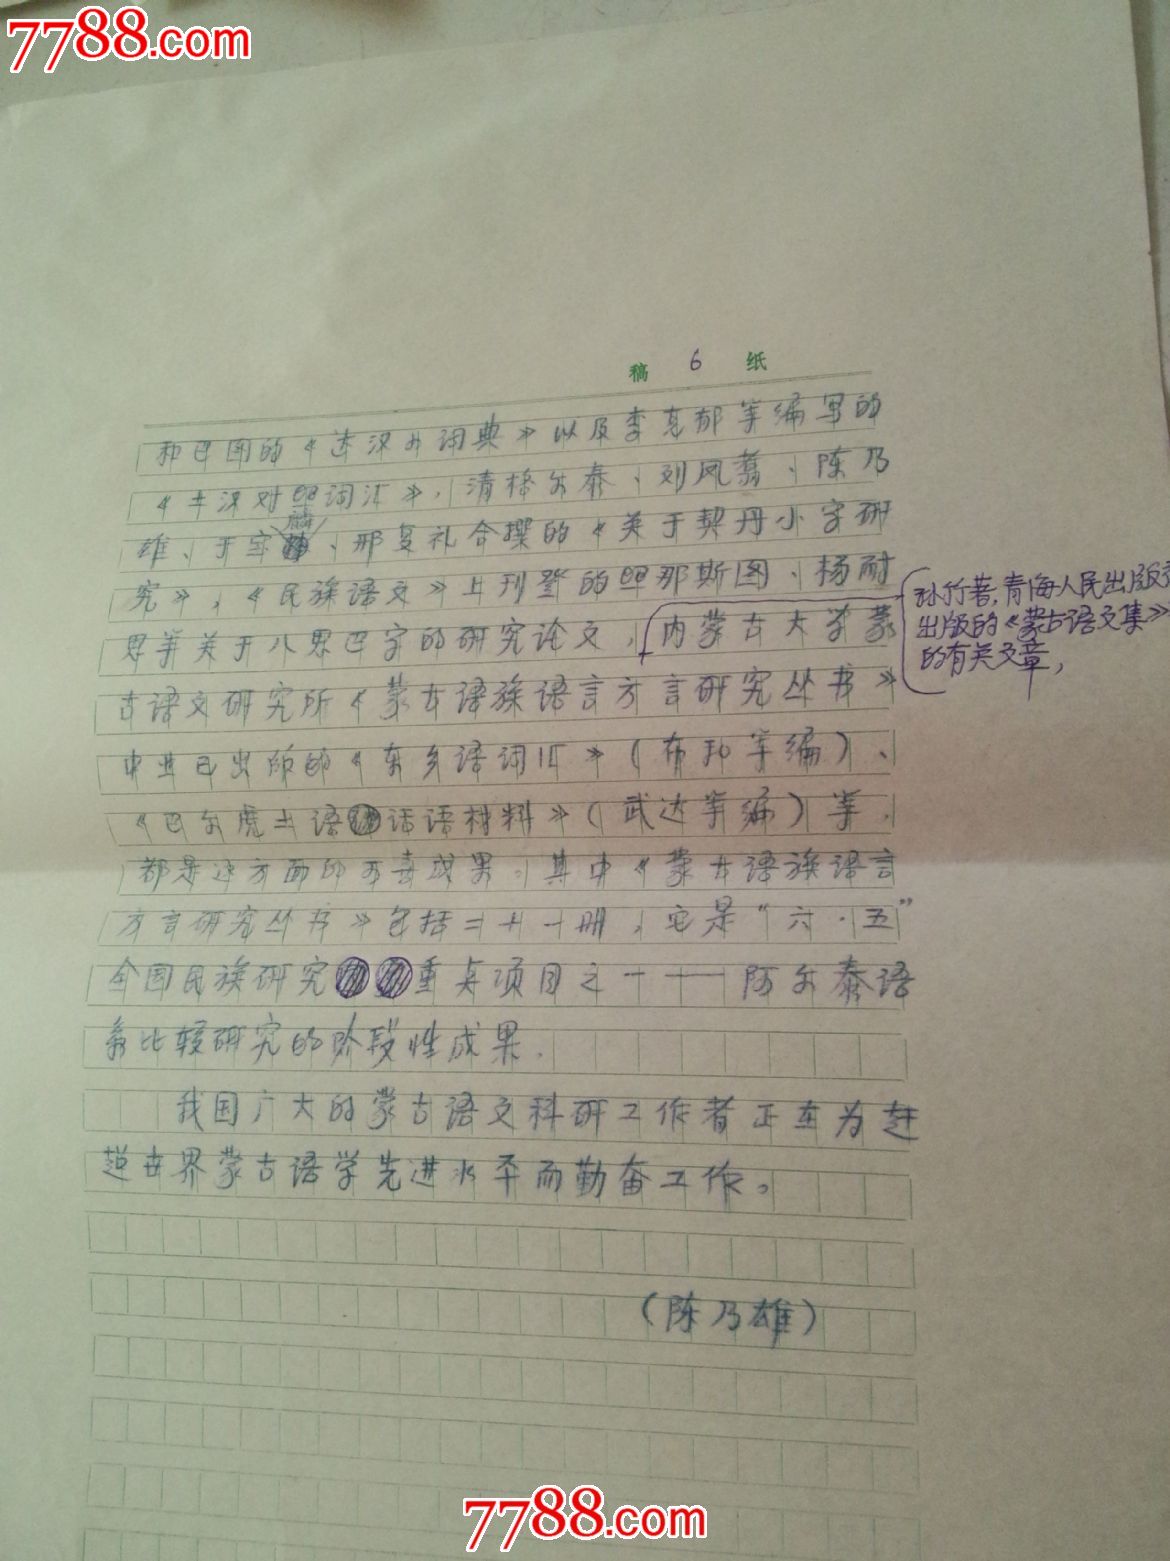 7788.com
稿 6 纸
和巴图的《达汉小词典》以及李克郁等编写的
《土汉对照词汇》，清格尔泰、刘凤翥、陈乃
雄、于宝麟、邢复礼合撰的《关于契丹小字研
究》，《民族语文》上刊登的照那斯图、杨耐
思等关于八思巴字的研究论文，内蒙古大学蒙
孙竹著，青海人民出版社
出版的《蒙古语文集》
的有关文章，
古语文研究所《蒙古语族语言方言研究丛书》
中业已出版的《东乡语词汇》（布和等编）、
《巴尔虎土语话语材料》（武达等编）等，
都是这方面的可喜成果。其中《蒙古语族语言
方言研究丛书》包括二十一册，它是“六·五”
全国民族研究重点项目之一——阿尔泰语
系比较研究的阶段性成果。
我国广大的蒙古语文科研工作者正在为赶
超世界蒙古语学先进水平而勤奋工作。
（陈乃雄）
7788.com